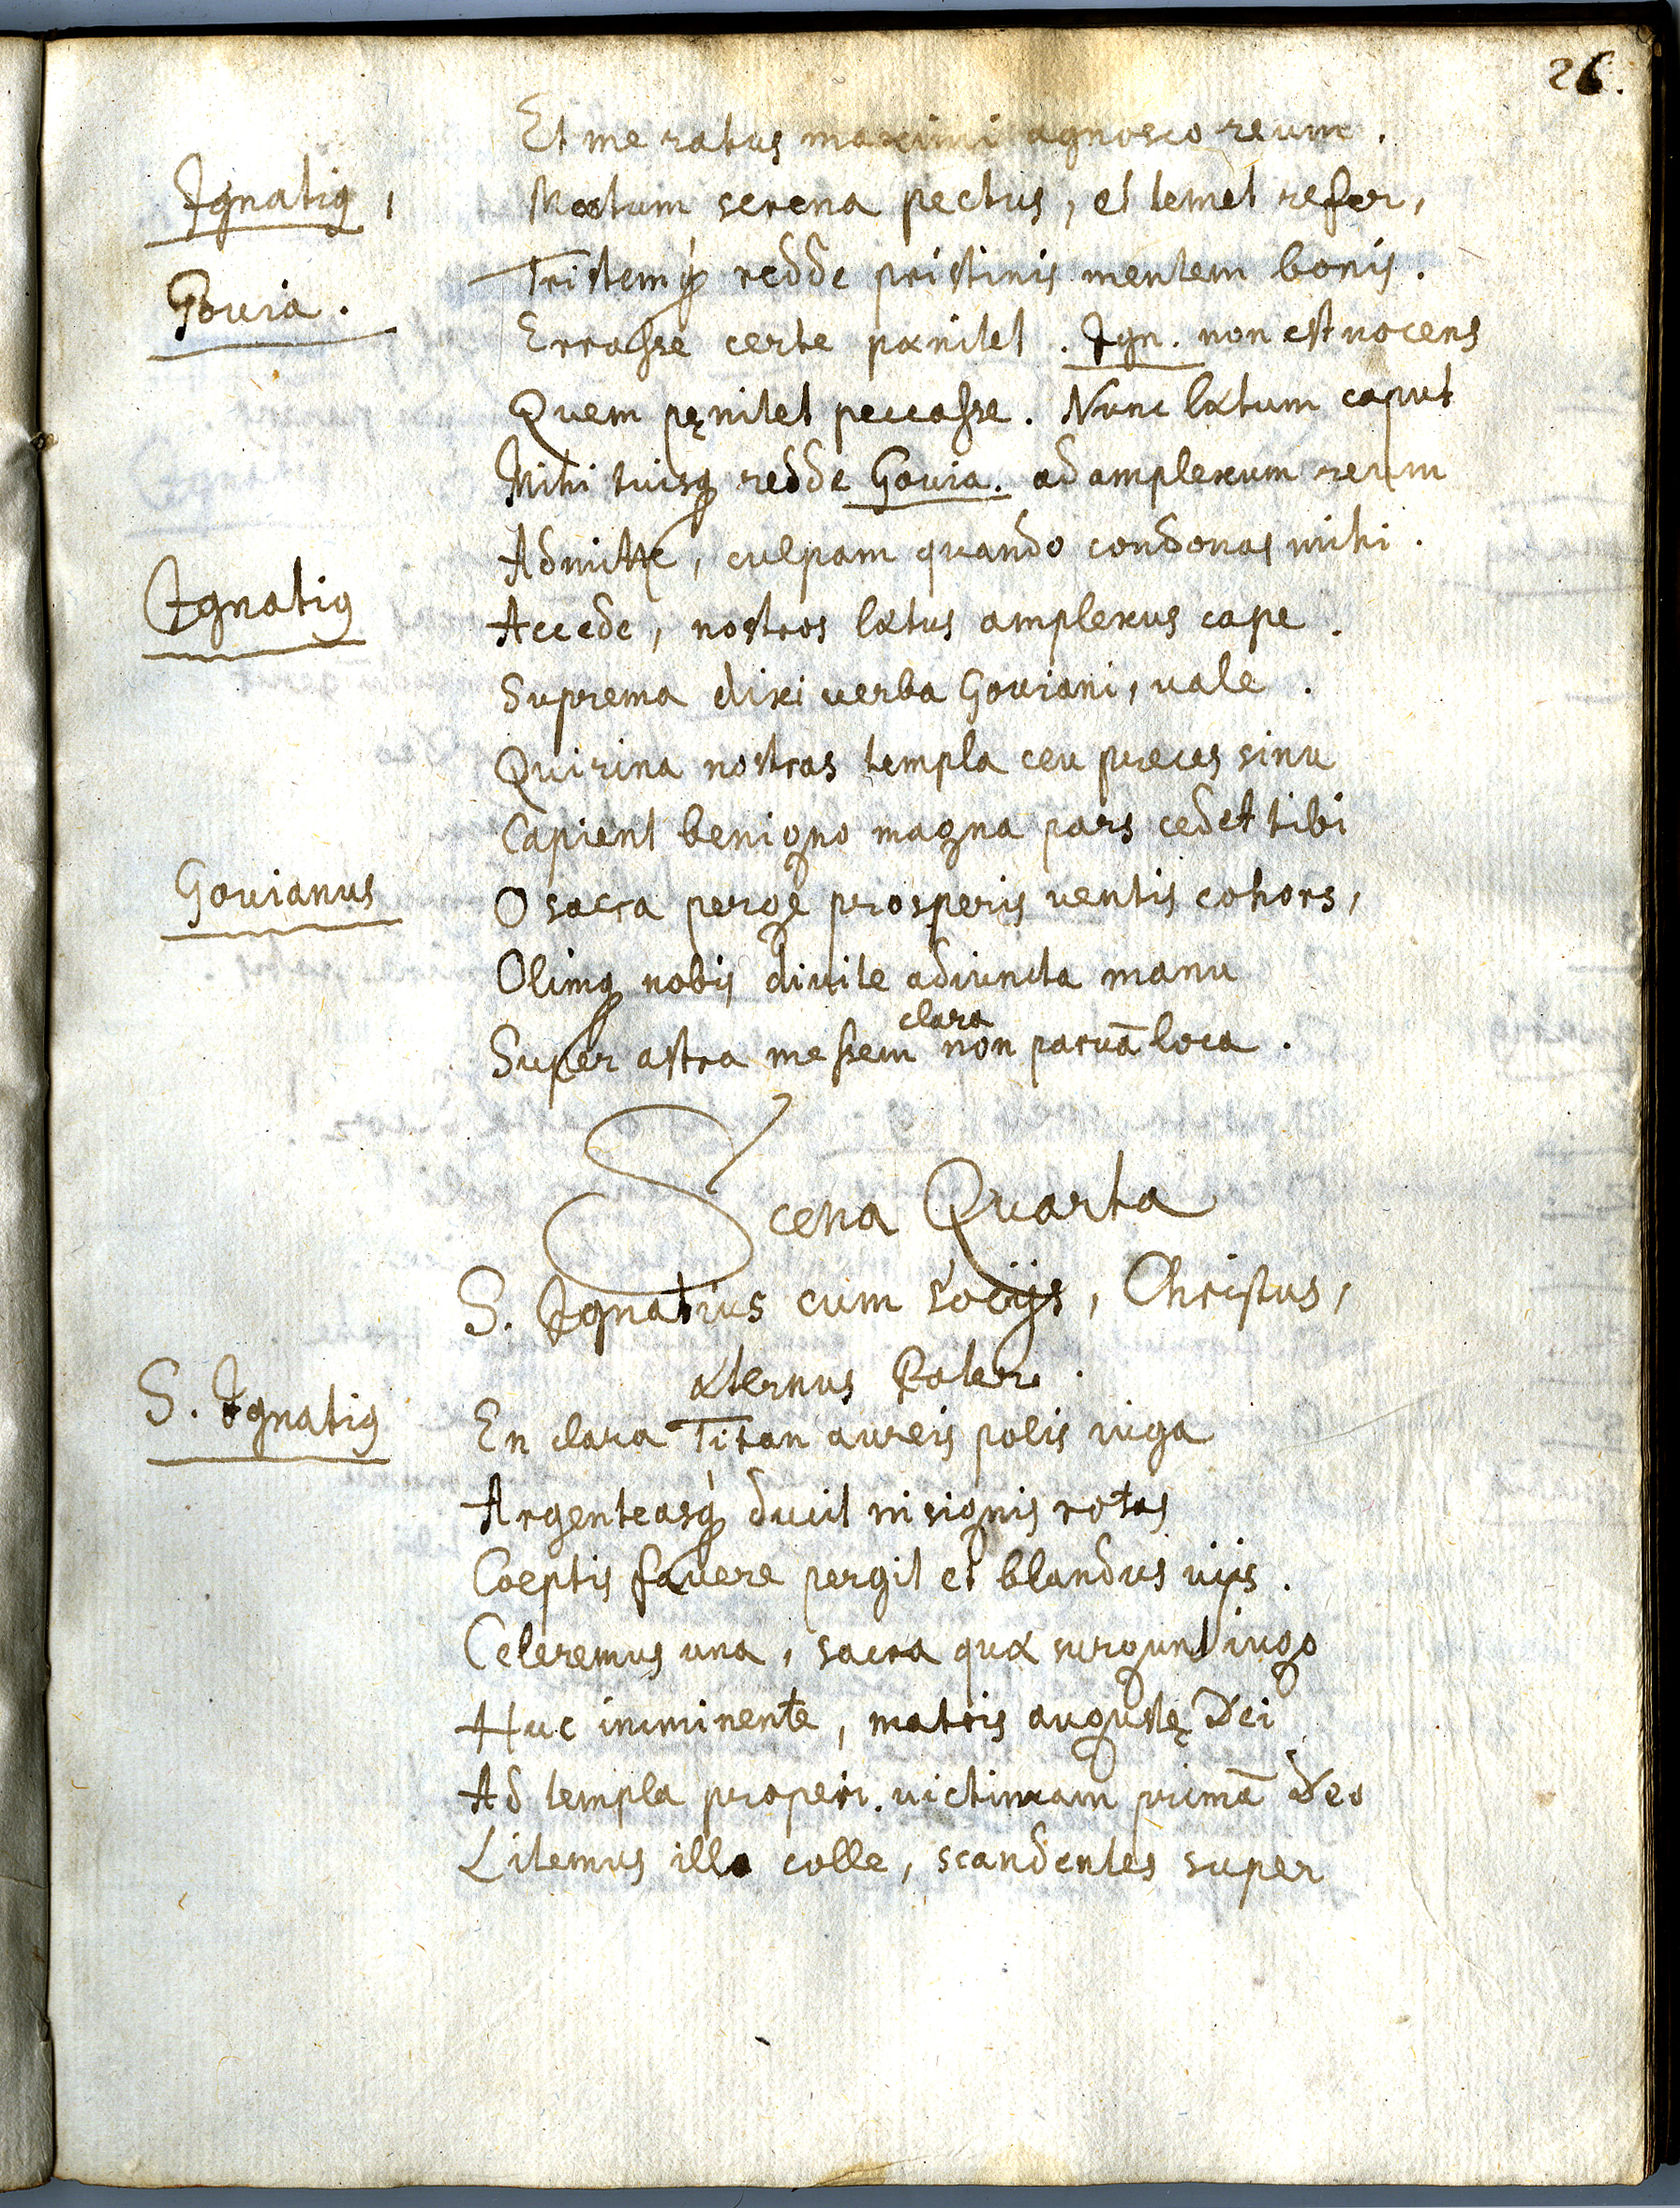 26.
Et me ratus maximi agnosco reum.
Ignatiꝰ, Mæstum serena pectus, et temet refer,
Tristemq́ꝫ redde pristinis mentem bonis.
Govia. Errasse certe pænitet. Ign. non est nocens
Quem pęnitet peccasse. Nunc lætum caput
Mihi tuisqꝫ redde Govia. ad amplexum reum
Admitte, culpam quando condonas mihi.
Ignatiꝰ Accede, nostros lætus amplexus cape.
Suprema dixi verba Goviani, vale.
Quirina nostras templa ceu preces sinu
Capient benigno magna pars cedet tibi
Govianus O sacra perge prosperis ventis cohors,
Olimqꝫ nobis divite adiuncta manu
clara
Super astra messem non parvā loca.
Scena Quarta
S. Ignatius cum socijs, Christus,
æternus Pater.
S. Ignatiꝰ En clara Titan aureis polis iuga
Argenteasq́ꝫ ducit insignis rotas
Coeptis favere pergit et blandus vijs.
Celeremus una, sacra quæ surgunt iugo
Huc imminente, matris augustę Dei
Ad templa properi. victimam primā Deo
Litemus illo colle, scandentes super